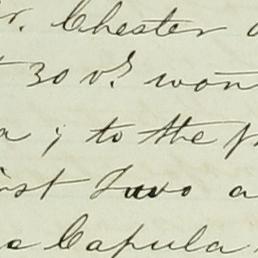 r. Chester
30 vs. won
a ; to the p
irst Two a
Capula